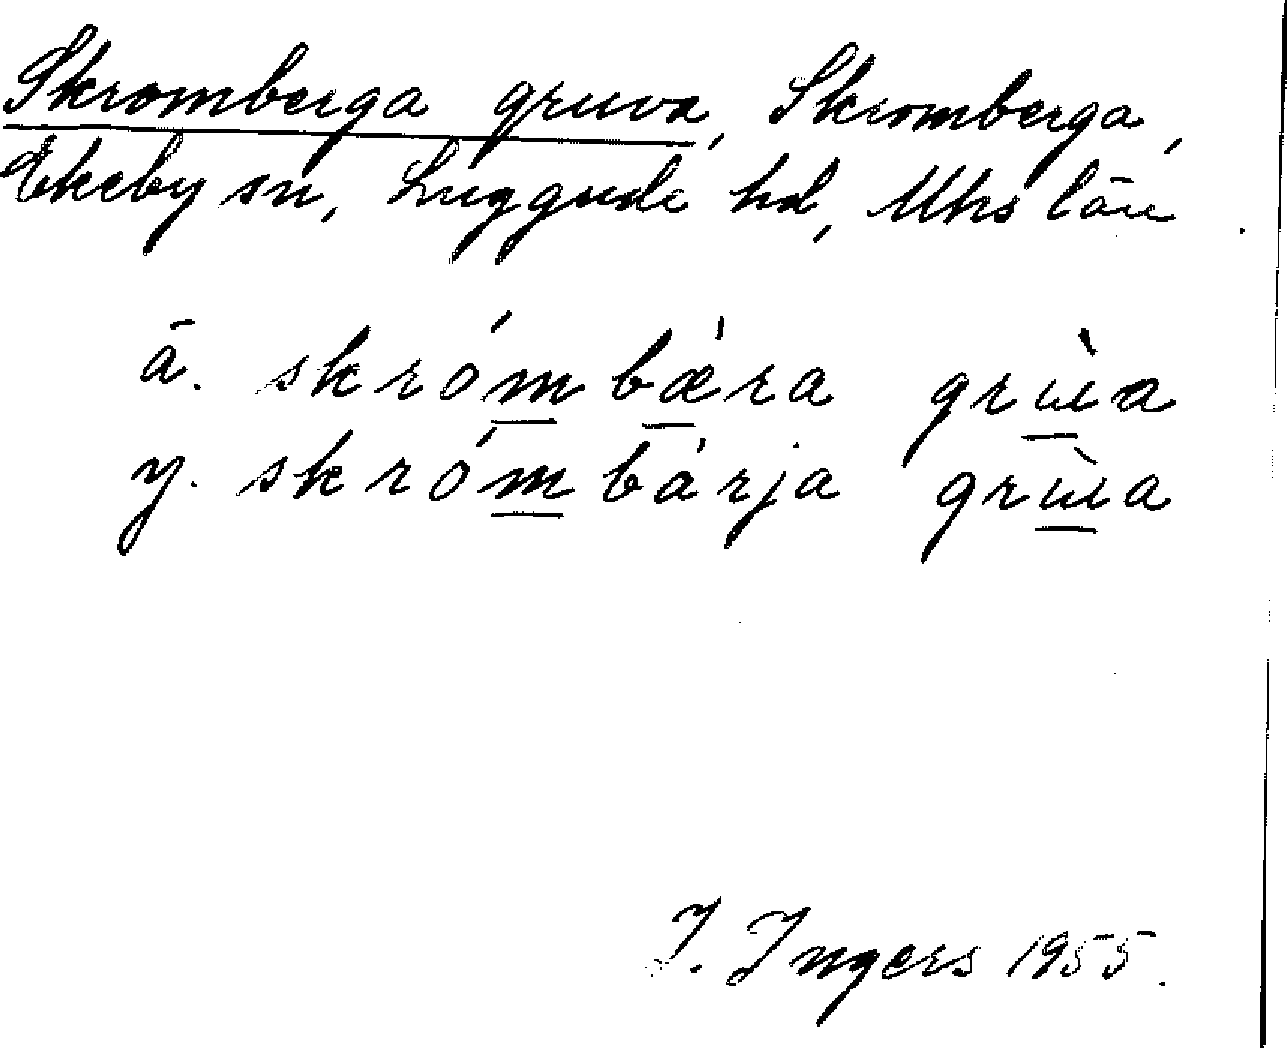 Skromberga gruva, Skromberga,
Ekeby sn, Luggude hd, Mhs län.
ä. skróm bæ̀ra grùıa
y. skróm bàrja grùıa
I. Ingers 1955.